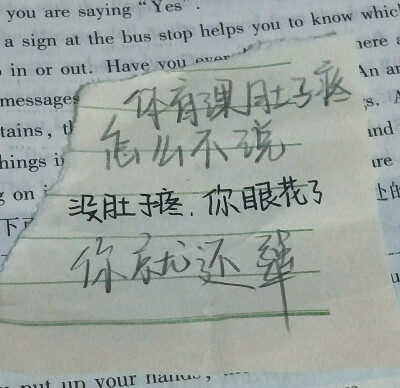 you are saying "Yes".
a sign at the bus stop helps you to know which
in or out. Have you ever here a
messages An an
tains, th s. A
hings i and
g on i are
体育课肚子疼
怎么不说
没肚子疼,你眼花了
上的
你就还犟
put up your hands,